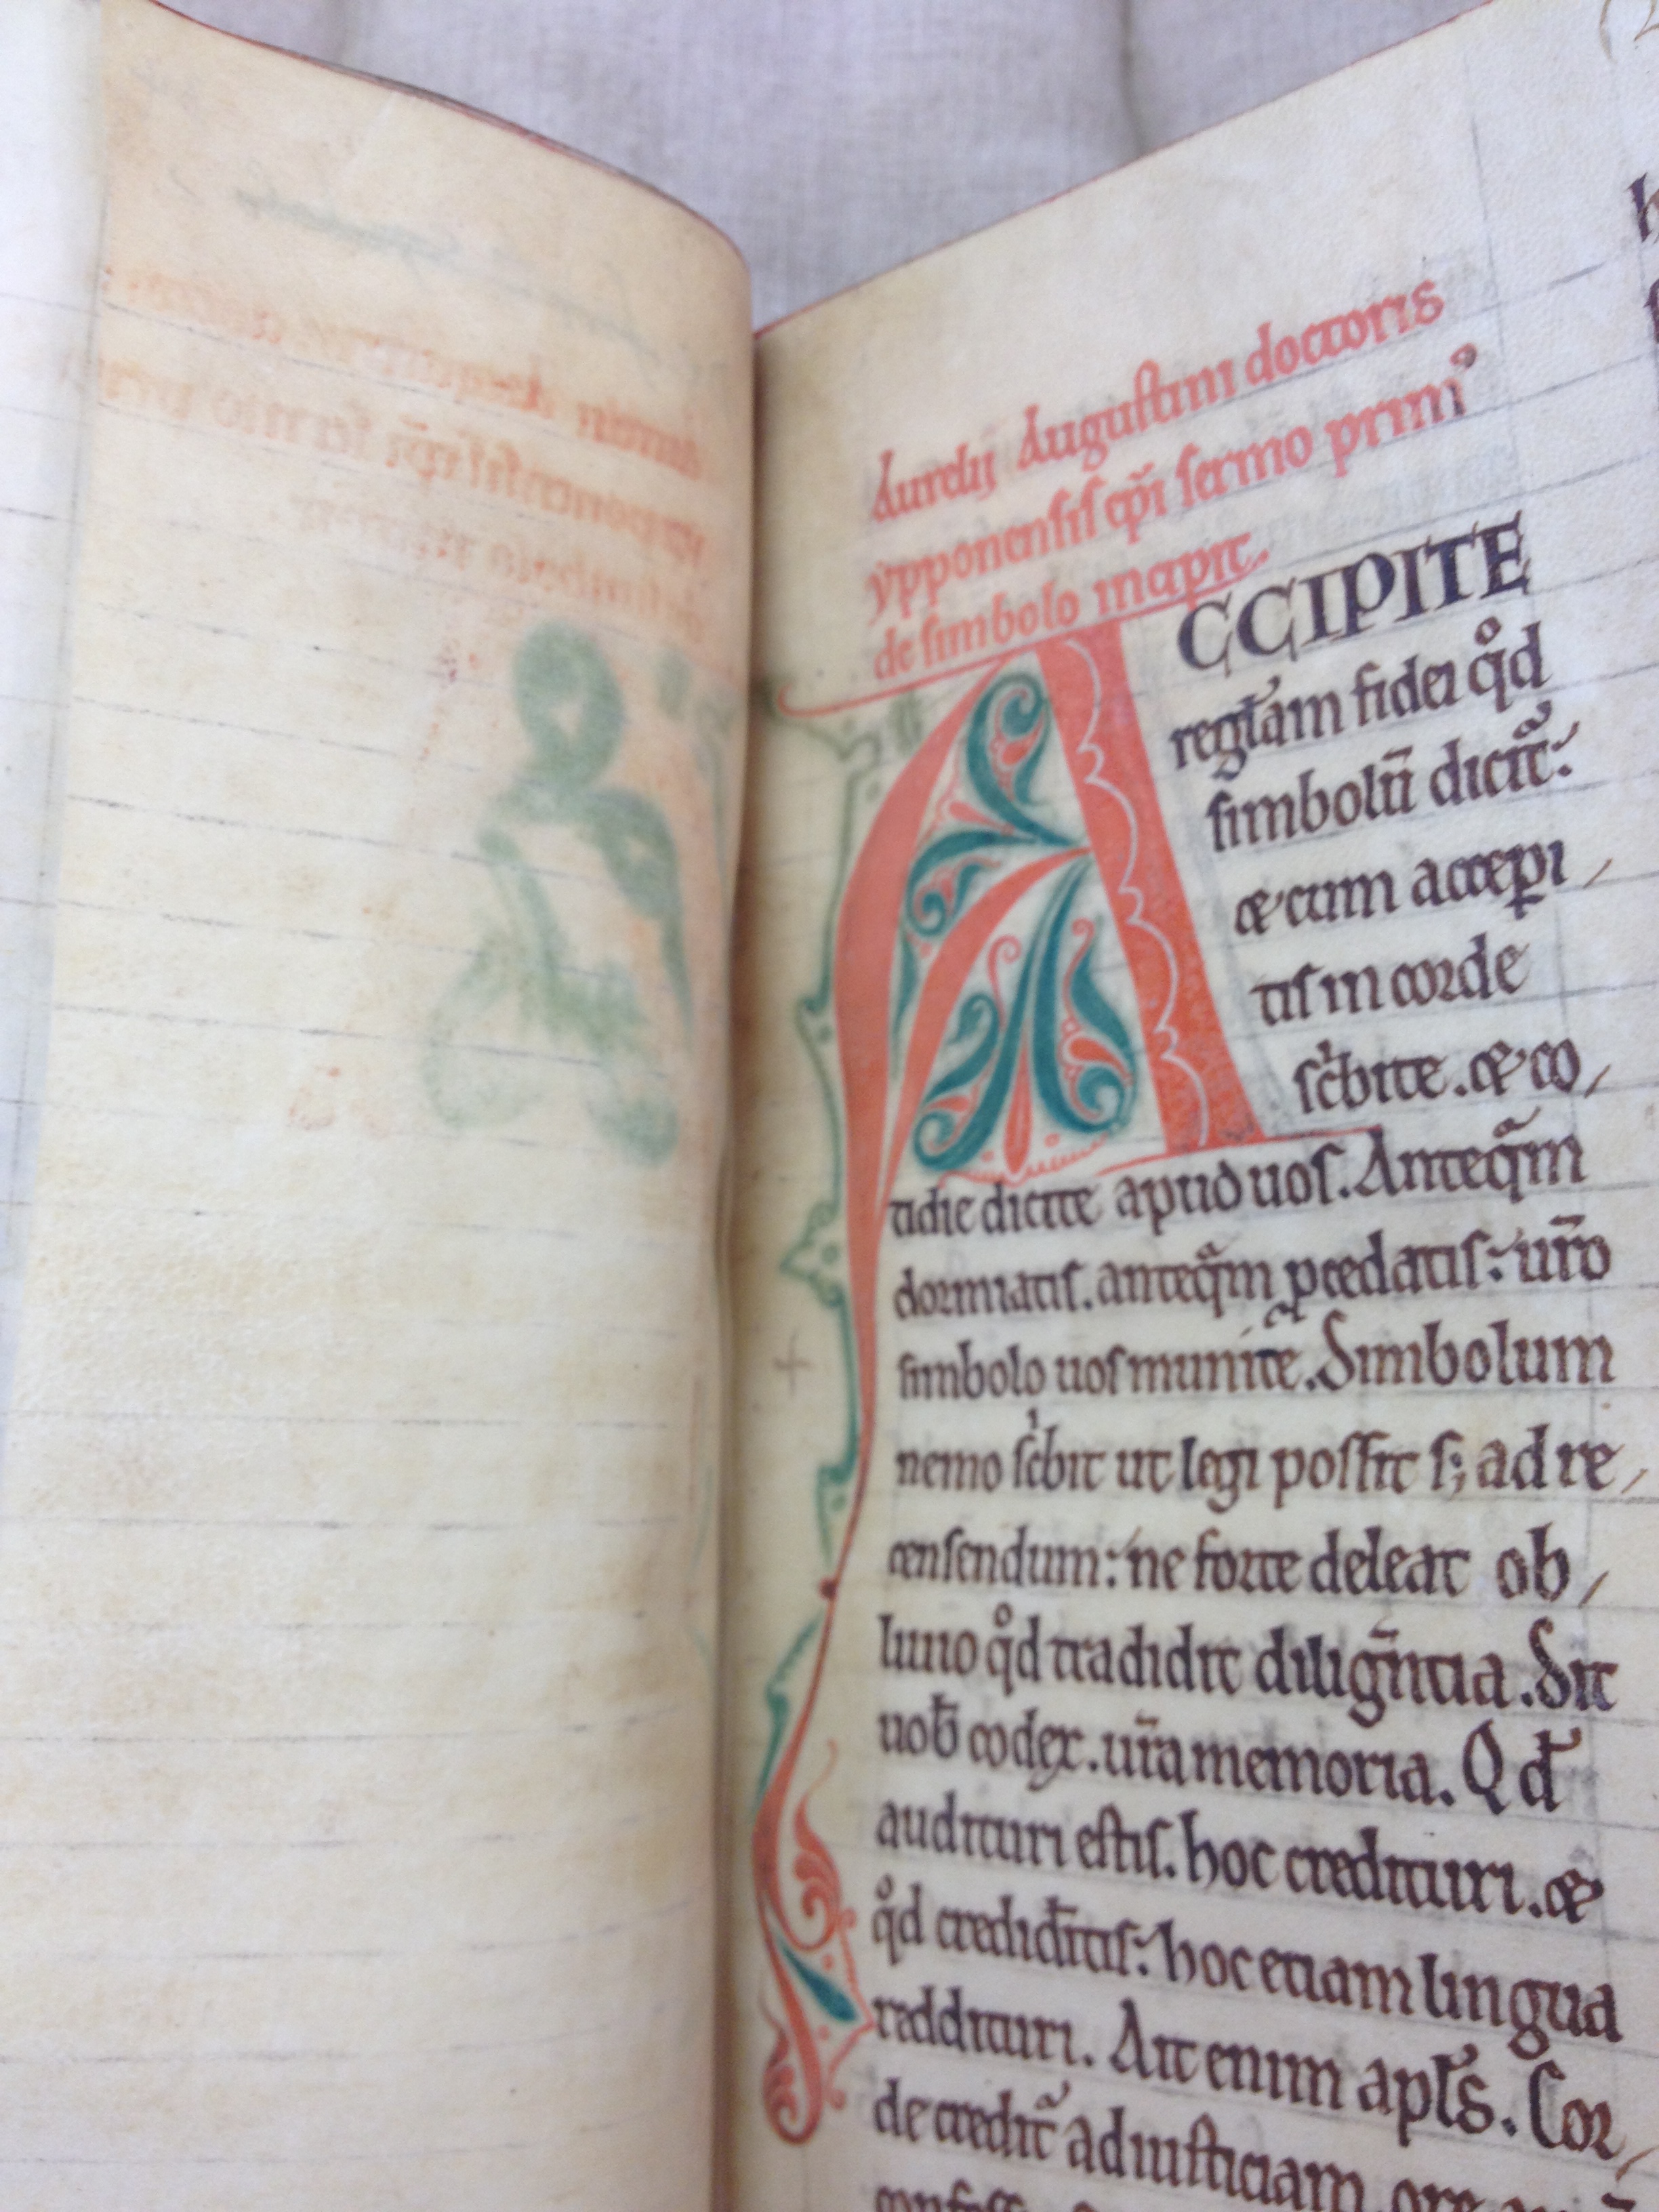 Aurelij Augustini doctoris
ypponensis ep̃i sermo prim⁹
de simbolo incipit.
ACCIPITE
regłam fidei qͦd
simbolũ dicit̃:
& cum accepi
tis in corde
sc̍bite. & co
tidie dicite apud uos. Anteqᷓm
dormiatis. anteqᷓm p̱cedatis: ur̃o
simbolo uos munite. Simbolum
nemo sc̍bit ut legi possit s; ad re
censendum: ne forte deleat ob
liuio qͦd tradidit diligñtia. Sit
uob̃ codex. ur̃a memoria. Qd̃
audituri estis. hoc credituri. &
qͦd credid̃itis: hoc etiam lingua
reddituri. Ait enim apłs. Cor
de credit̃ ad iusticiam ore